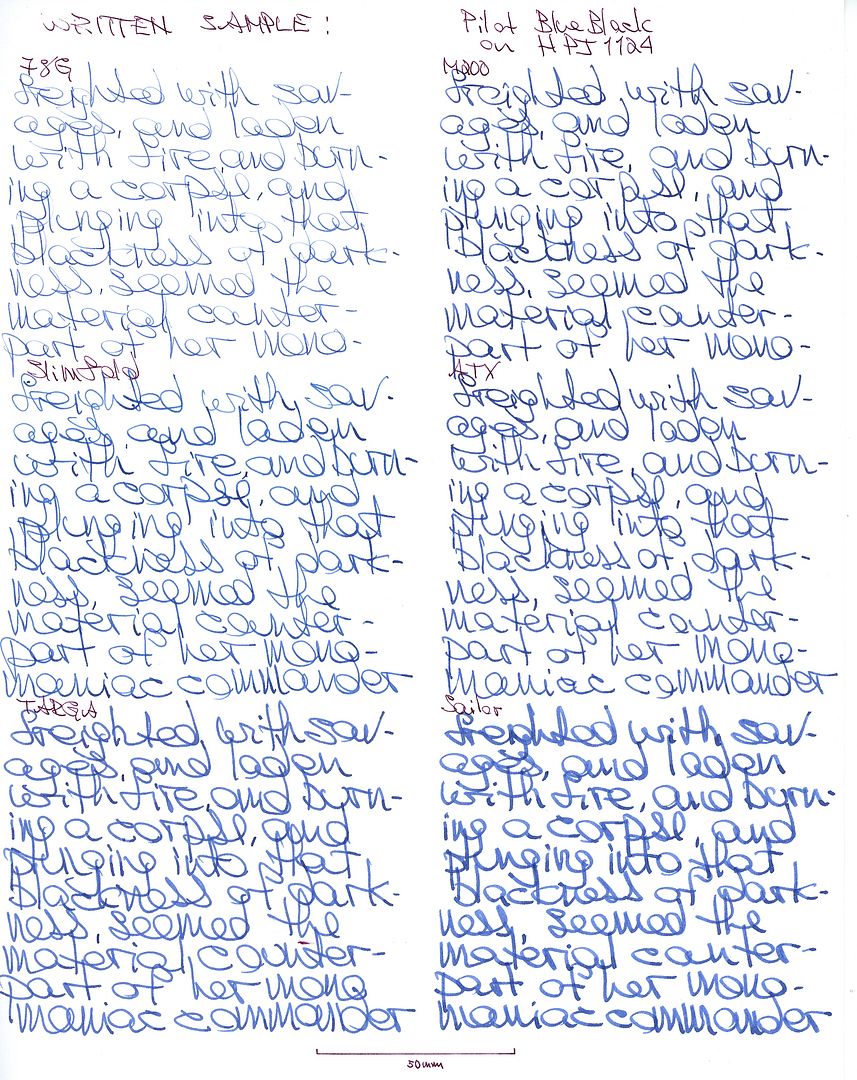 WRITTEN SAMPLE:
Pilot Blue Black
on HPJ1124
78G
freighted with sav-
ages, and laden
with fire, and burn-
ing a corpse, and
plunging into that
blackness of dark-
ness, seemed the
material counter-
part of her mono-
Slimfold
freighted with sav-
ages, and laden
with fire, and burn-
ing a corpse, and
plunging into that
blackness of dark-
ness, seemed the
material counter-
part of her mono-
maniac commander
TARGA
freighted with sav-
ages, and laden
with fire, and burn-
ing a corpse, and
plunging into that
blackness of dark-
ness, seemed the
material counter-
part of her mono
maniac commander
M200
freighted with sav-
ages, and laden
with fire, and burn-
ing a corpse, and
plunging into that
blackness of dark-
ness, seemed the
material counter-
part of her mono-
ATX
freighted with sav-
ages, and laden
with fire, and burn-
ing a corpse, and
plunging into that
blackness of dark-
ness, seemed the
material counter-
part of her mono-
maniac commander
Sailor
freighted with sav-
ages, and laden
with fire, and burn-
ing a corpse, and
plunging into that
blackness of dark-
ness, seemed the
material counter-
part of her mono-
maniac commander
50mm